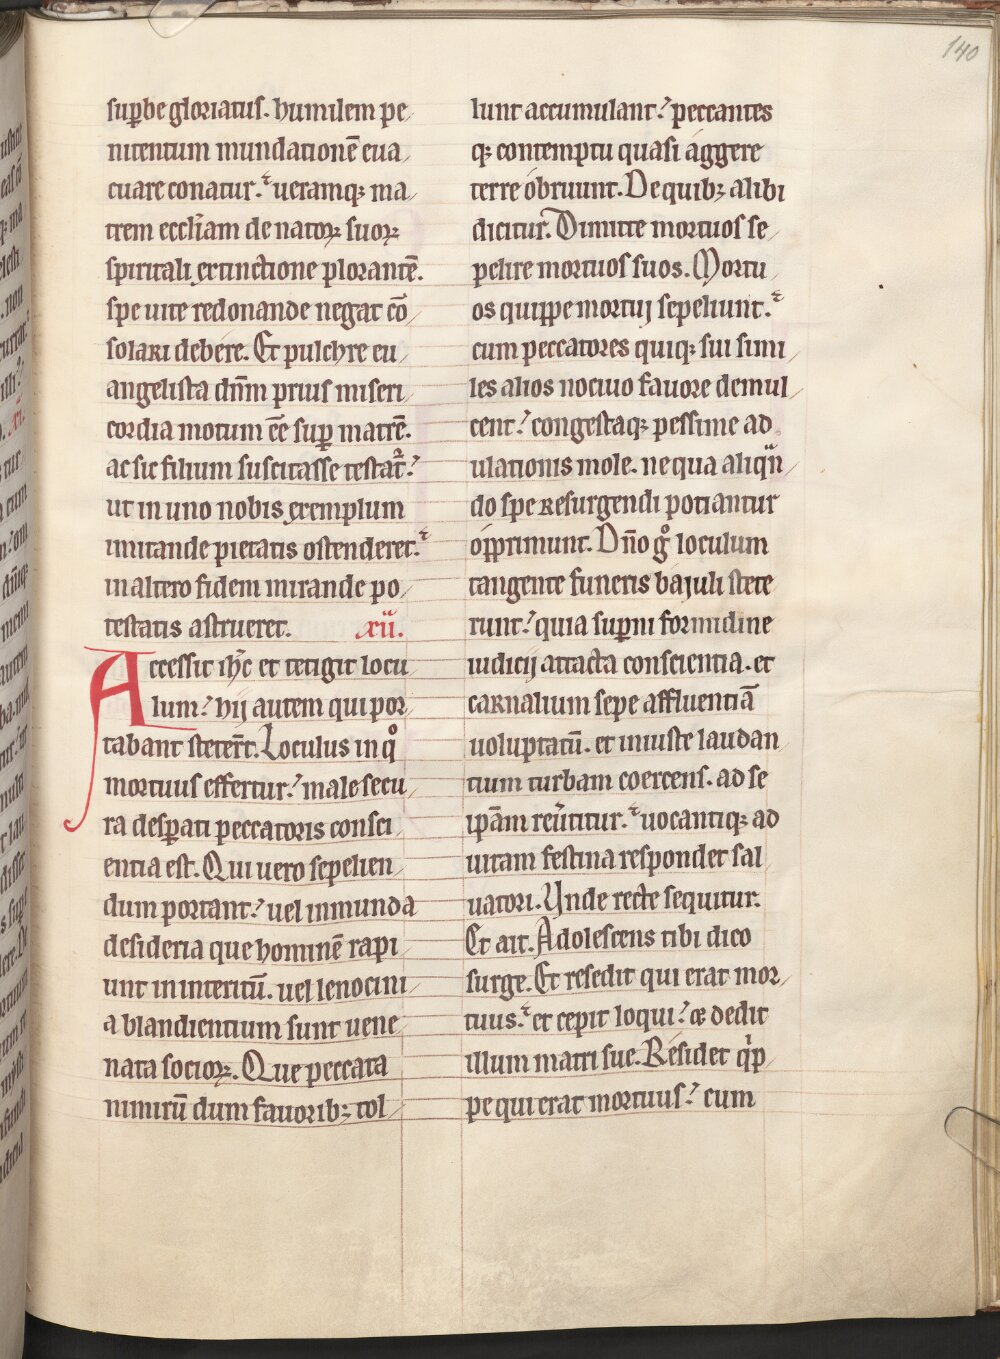 140
suꝑbe gloriatus. humilem pe
nitentium mundationē eua
cuare conatur. ueramqꝫ ma
trem eccl̄iam de natoꝝ suoꝝ
spiritali extinctione plorantē.
spe uite redonande negat cō
solari debere. Et pulchre eu
angelista dn̄m prius miseri
cordia motum eē suꝑ matrē.
ac sic filium suscitasse testat᷑.
ut in uno nobis exemplum
imitande pietatis ostenderet.
in altero fidem mirande po
testatis astrueret. xii.
Accessit ih̄c et tetigit locu
lum. hij autem qui por
tabant steter̄t. Loculus in qͦ
mortuus effertur. male secu
ra desꝑati peccatoris consci
entia est. Qui uero sepelien
dum portant. uel inmunda
desideria que hominē rapi
unt in interitū. uel lenocini
a blandientium sunt uene
nata socioꝝ. Que peccata
nimirū dum fauoribꝫ tol
lunt accumulant. peccantes
qꝫ contemptu quasi aggere
terre obruunt. De quibꝫ alibi
dicitur. Dimitte mortuos se
pelire mortuos suos. Mortu
os quippe mortuj sepeliunt.
cum peccatores quiqꝫ sui simi
les alios nociuo fauore demul
cent. congestaqꝫ pessime ad
ulationis mole. ne qua aliqn̄
do spe resurgendi potiantur
opprimunt. Dn̄o gͦ loculum
tangente funeris bajuli stete
runt. quia suꝑni formidine
iudicij attacta conscientia. et
carnalium sepe affluentiā
uoluptatū. et iniuste laudan
tium turbam coercens. ad se
ipsam reu̾titur. uocantiqꝫ ad
uitam festina respondet sal
uatori. Unde recte sequitur.
Et ait. Adolescens tibi dico
surge. Et resedit qui erat mor
tuus. et cepit loqui. & dedit
illum matri sue. Residet qͥp
pe qui erat mortuus. cum